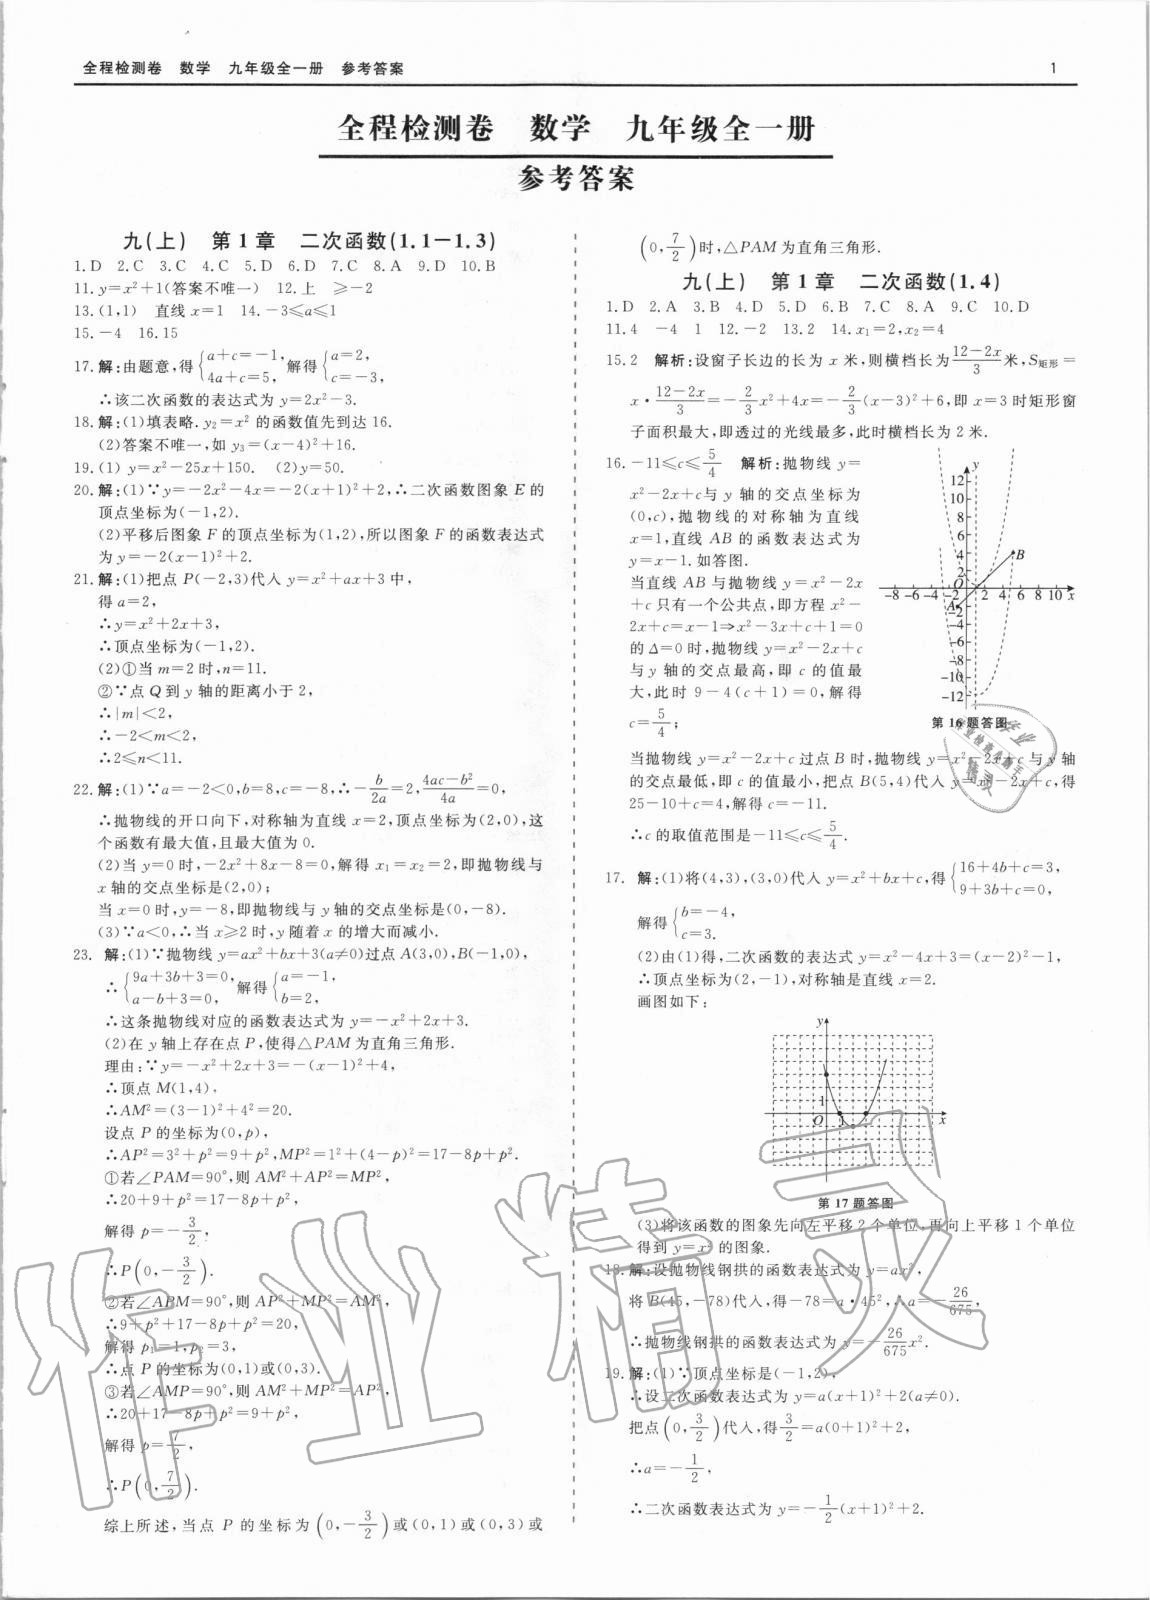 全程检测卷 数学 九年级全一册 参考答案 1
全程检测卷 数学 九年级全一册
参考答案
九(上) 第1章 二次函数(1.1—1.3)
1.D 2.C 3.C 4.C 5.D 6.D 7.C 8.A 9.D 10.B
11.y=x²+1(答案不唯一) 12.上 ≥-2
13.(1,1) 直线x=1 14.-3≤a≤1
15.-4 16.15
17.解:由题意,得{a+c=-1, 4a+c=5, 解得{a=2, c=-3,
∴该二次函数的表达式为y=2x²-3.
18.解:(1)填表略.y₂=x²的函数值先到达16.
(2)答案不唯一,如y₃=(x-4)²+16.
19.(1)y=x²-25x+150. (2)y=50.
20.解:(1)∵y=-2x²-4x=-2(x+1)²+2,∴二次函数图象E的
顶点坐标为(-1,2).
(2)平移后图象F的顶点坐标为(1,2),所以图象F的函数表达式
为y=-2(x-1)²+2.
21.解:(1)把点P(-2,3)代入y=x²+ax+3中,
得a=2,
∴y=x²+2x+3,
∴顶点坐标为(-1,2).
(2)①当m=2时,n=11.
②∵点Q到y轴的距离小于2,
∴|m|<2,
∴-2<m<2,
∴2≤n<11.
22.解:(1)∵a=-2<0,b=8,c=-8,∴-b/2a=2,(4ac-b²)/4a=0,
∴抛物线的开口向下,对称轴为直线x=2,顶点坐标为(2,0),这
个函数有最大值,且最大值为0.
(2)当y=0时,-2x²+8x-8=0,解得x₁=x₂=2,即抛物线与
x轴的交点坐标是(2,0);
当x=0时,y=-8,即抛物线与y轴的交点坐标是(0,-8).
(3)∵a<0,∴当x≥2时,y随着x的增大而减小.
23.解:(1)∵抛物线y=ax²+bx+3(a≠0)过点A(3,0),B(-1,0),
∴{9a+3b+3=0, a-b+3=0, 解得{a=-1, b=2,
∴这条抛物线对应的函数表达式为y=-x²+2x+3.
(2)在y轴上存在点P,使得△PAM为直角三角形.
理由:∵y=-x²+2x+3=-(x-1)²+4,
∴顶点M(1,4),
∴AM²=(3-1)²+4²=20.
设点P的坐标为(0,p),
∴AP²=3²+p²=9+p²,MP²=1²+(4-p)²=17-8p+p².
①若∠PAM=90°,则AM²+AP²=MP²,
∴20+9+p²=17-8p+p²,
解得p=-3/2,
∴P(0,-3/2).
②若∠APM=90°,则AP²+MP²=AM²,
∴9+p²+17-8p+p²=20,
解得p₁=1,p₂=3,
∴点P的坐标为(0,1)或(0,3).
③若∠AMP=90°,则AM²+MP²=AP²,
∴20+17-8p+p²=9+p²,
解得p=7/2,
∴P(0,7/2).
综上所述,当点P的坐标为(0,-3/2)或(0,1)或(0,3)或
(0,7/2)时,△PAM为直角三角形.
九(上) 第1章 二次函数(1.4)
1.D 2.A 3.B 4.D 5.D 6.B 7.C 8.A 9.C 10.D
11.4 -4 1 12.-2 13.2 14.x₁=2,x₂=4
15.2 解析:设窗子长边的长为x米,则横档长为(12-2x)/3米,S矩形=
x·(12-2x)/3=-2/3x²+4x=-2/3(x-3)²+6,即x=3时矩形窗
子面积最大,即透过的光线最多,此时横档长为2米.
16.-11≤c≤5/4 解析:抛物线y=
x²-2x+c与y轴的交点坐标为
(0,c),抛物线的对称轴为直线
x=1,直线AB的函数表达式为
y=x-1.如答图.
当直线AB与抛物线y=x²-2x
+c只有一个公共点,即方程x²-
2x+c=x-1⇒x²-3x+c+1=0
的Δ=0时,抛物线y=x²-2x+c
与y轴的交点最高,即c的值最
大,此时9-4(c+1)=0,解得
c=5/4;
y
12
10
8
6
4
2
O
-8 -6 -4 -2 2 4 6 8 10 x
A
B
-2
-4
-6
-8
-10
-12
第16题答图
当抛物线y=x²-2x+c过点B时,抛物线y=x²-2x+c与y轴
的交点最低,即c的值最小,把点B(5,4)代入y=x²-2x+c,得
25-10+c=4,解得c=-11.
∴c的取值范围是-11≤c≤5/4.
17.解:(1)将(4,3),(3,0)代入y=x²+bx+c,得{16+4b+c=3, 9+3b+c=0,
解得{b=-4, c=3.
(2)由(1)得,二次函数的表达式y=x²-4x+3=(x-2)²-1,
∴顶点坐标为(2,-1),对称轴是直线x=2.
画图如下:
y
1
O 1 x
第17题答图
(3)将该函数的图象先向左平移2个单位,再向上平移1个单位
得到y=x²的图象.
18.解:设抛物线钢拱的函数表达式为y=ax²,
将B(45,-78)代入,得-78=a·45²,∴a=-26/675,
∴抛物线钢拱的函数表达式为y=-26/675x².
19.解:(1)∵顶点坐标是(-1,2),
∴设二次函数表达式为y=a(x+1)²+2(a≠0).
把点(0,3/2)代入,得3/2=a(0+1)²+2,
∴a=-1/2,
∴二次函数表达式为y=-1/2(x+1)²+2.
作业精灵